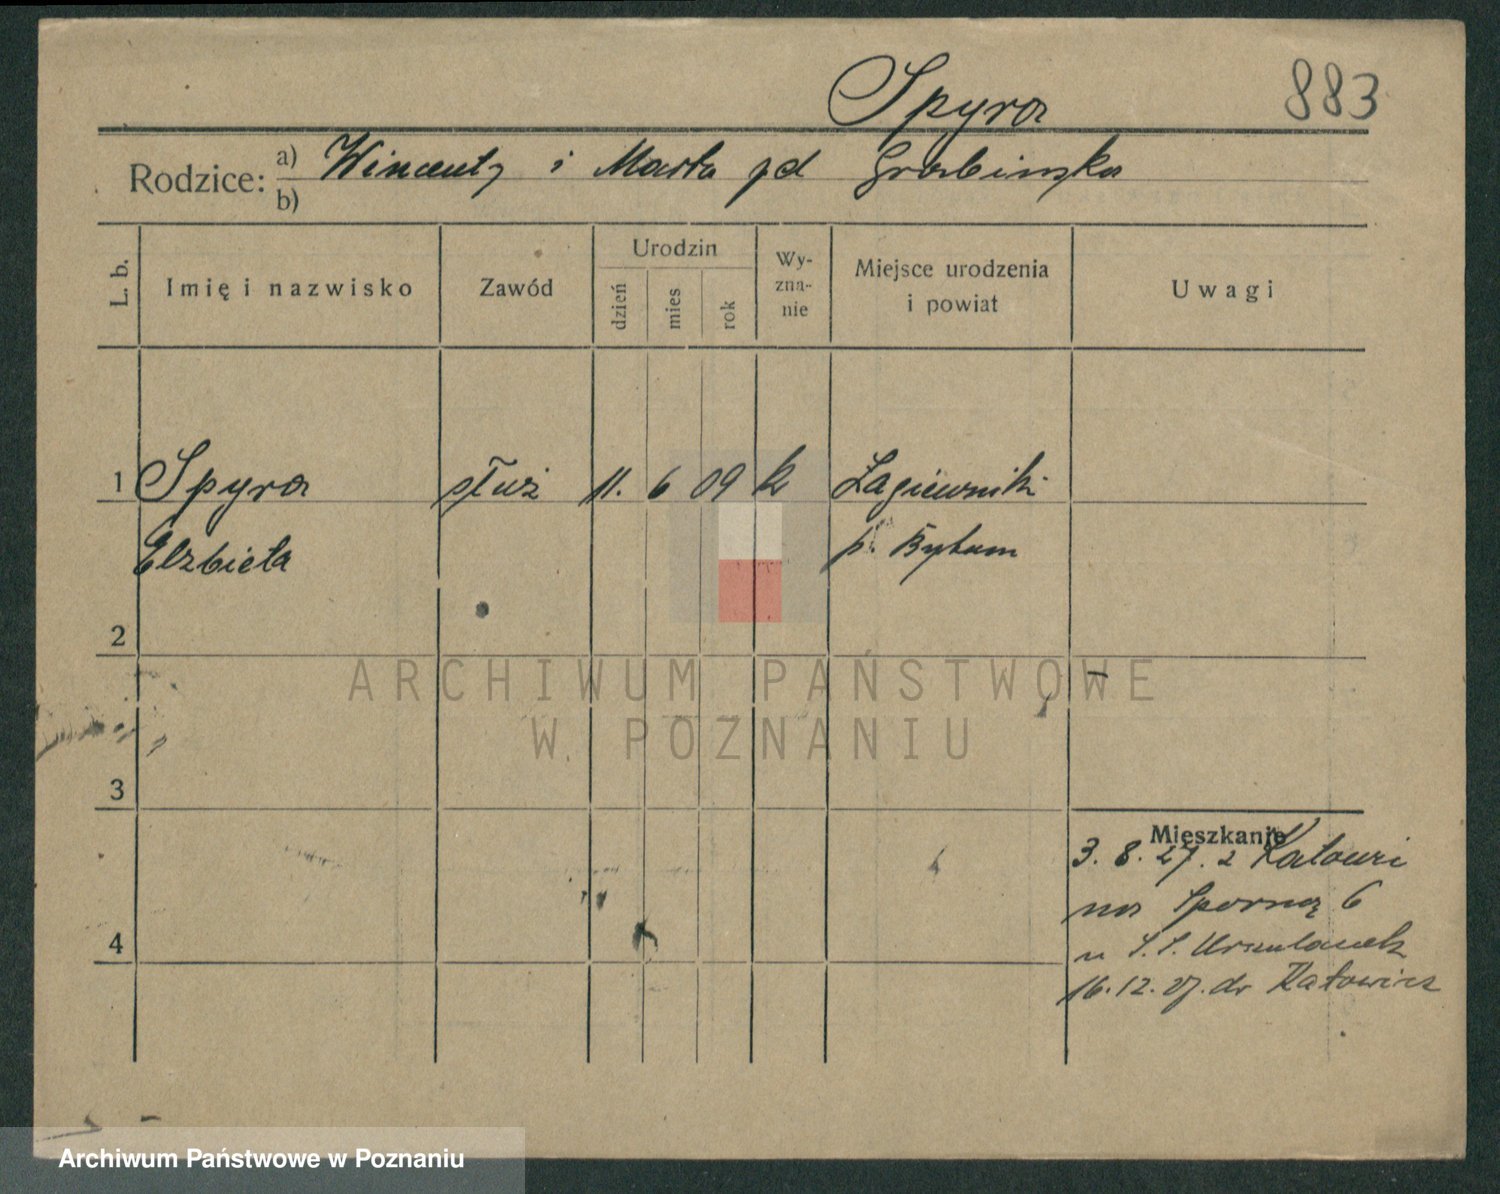 Spyra 883
Rodzice: a) Wincenty i Marta zd Grabinska
b)
L. b. Imię i nazwisko Zawód Urodzin dzień mies rok Wy-zna-nie Miejsce urodzenia i powiat Uwagi
1 Spyra służ 11. 6 09 k Łagiewniki
Elzbieta p. Bytum
2
ARCHIWUM PAŃSTWOWE
W POZNANIU
3
Mieszkanie
3. 8. 27. z Katowic
na Sporną 6
4
u S.S. Urszulanek
16. 12. 27. do Katowic
Archiwum Państwowe w Poznaniu